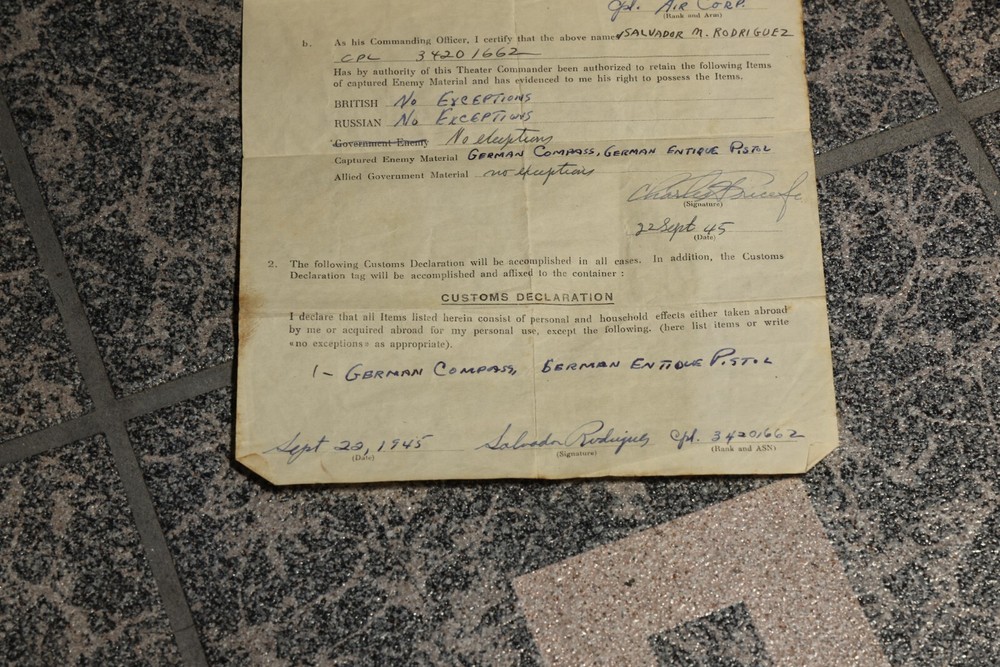 Cpl. AIR CORP.
(Rank and Arm)
b. As his Commanding Officer, I certify that the above named SALVADOR M. RODRIGUEZ
CPL 34201662
Has by authority of this Theater Commander been authorized to retain the following Items
of captured Enemy Material and has evidenced to me his right to possess the Items.
BRITISH No EXCEPTIONS
RUSSIAN No EXCEPTIONS
Government Enemy No exceptions
Captured Enemy Material GERMAN COMPASS, GERMAN ENTIQUE PISTOL
Allied Government Material no exceptions
(Signature)
22 Sept 45
(Date)
2. The following Customs Declaration will be accomplished in all cases. In addition, the Customs
Declaration tag will be accomplished and affixed to the container :
CUSTOMS DECLARATION
I declare that all Items listed herein consist of personal and household effects either taken abroad
by me or acquired abroad for my personal use, except the following. (here list items or write
«no exceptions» as appropriate).
1- GERMAN COMPASS, GERMAN ENTIQUE PISTOL
Sept 22, 1945 Salvador Rodriguez Cpl. 34201662
(Date) (Signature) (Rank and ASN)